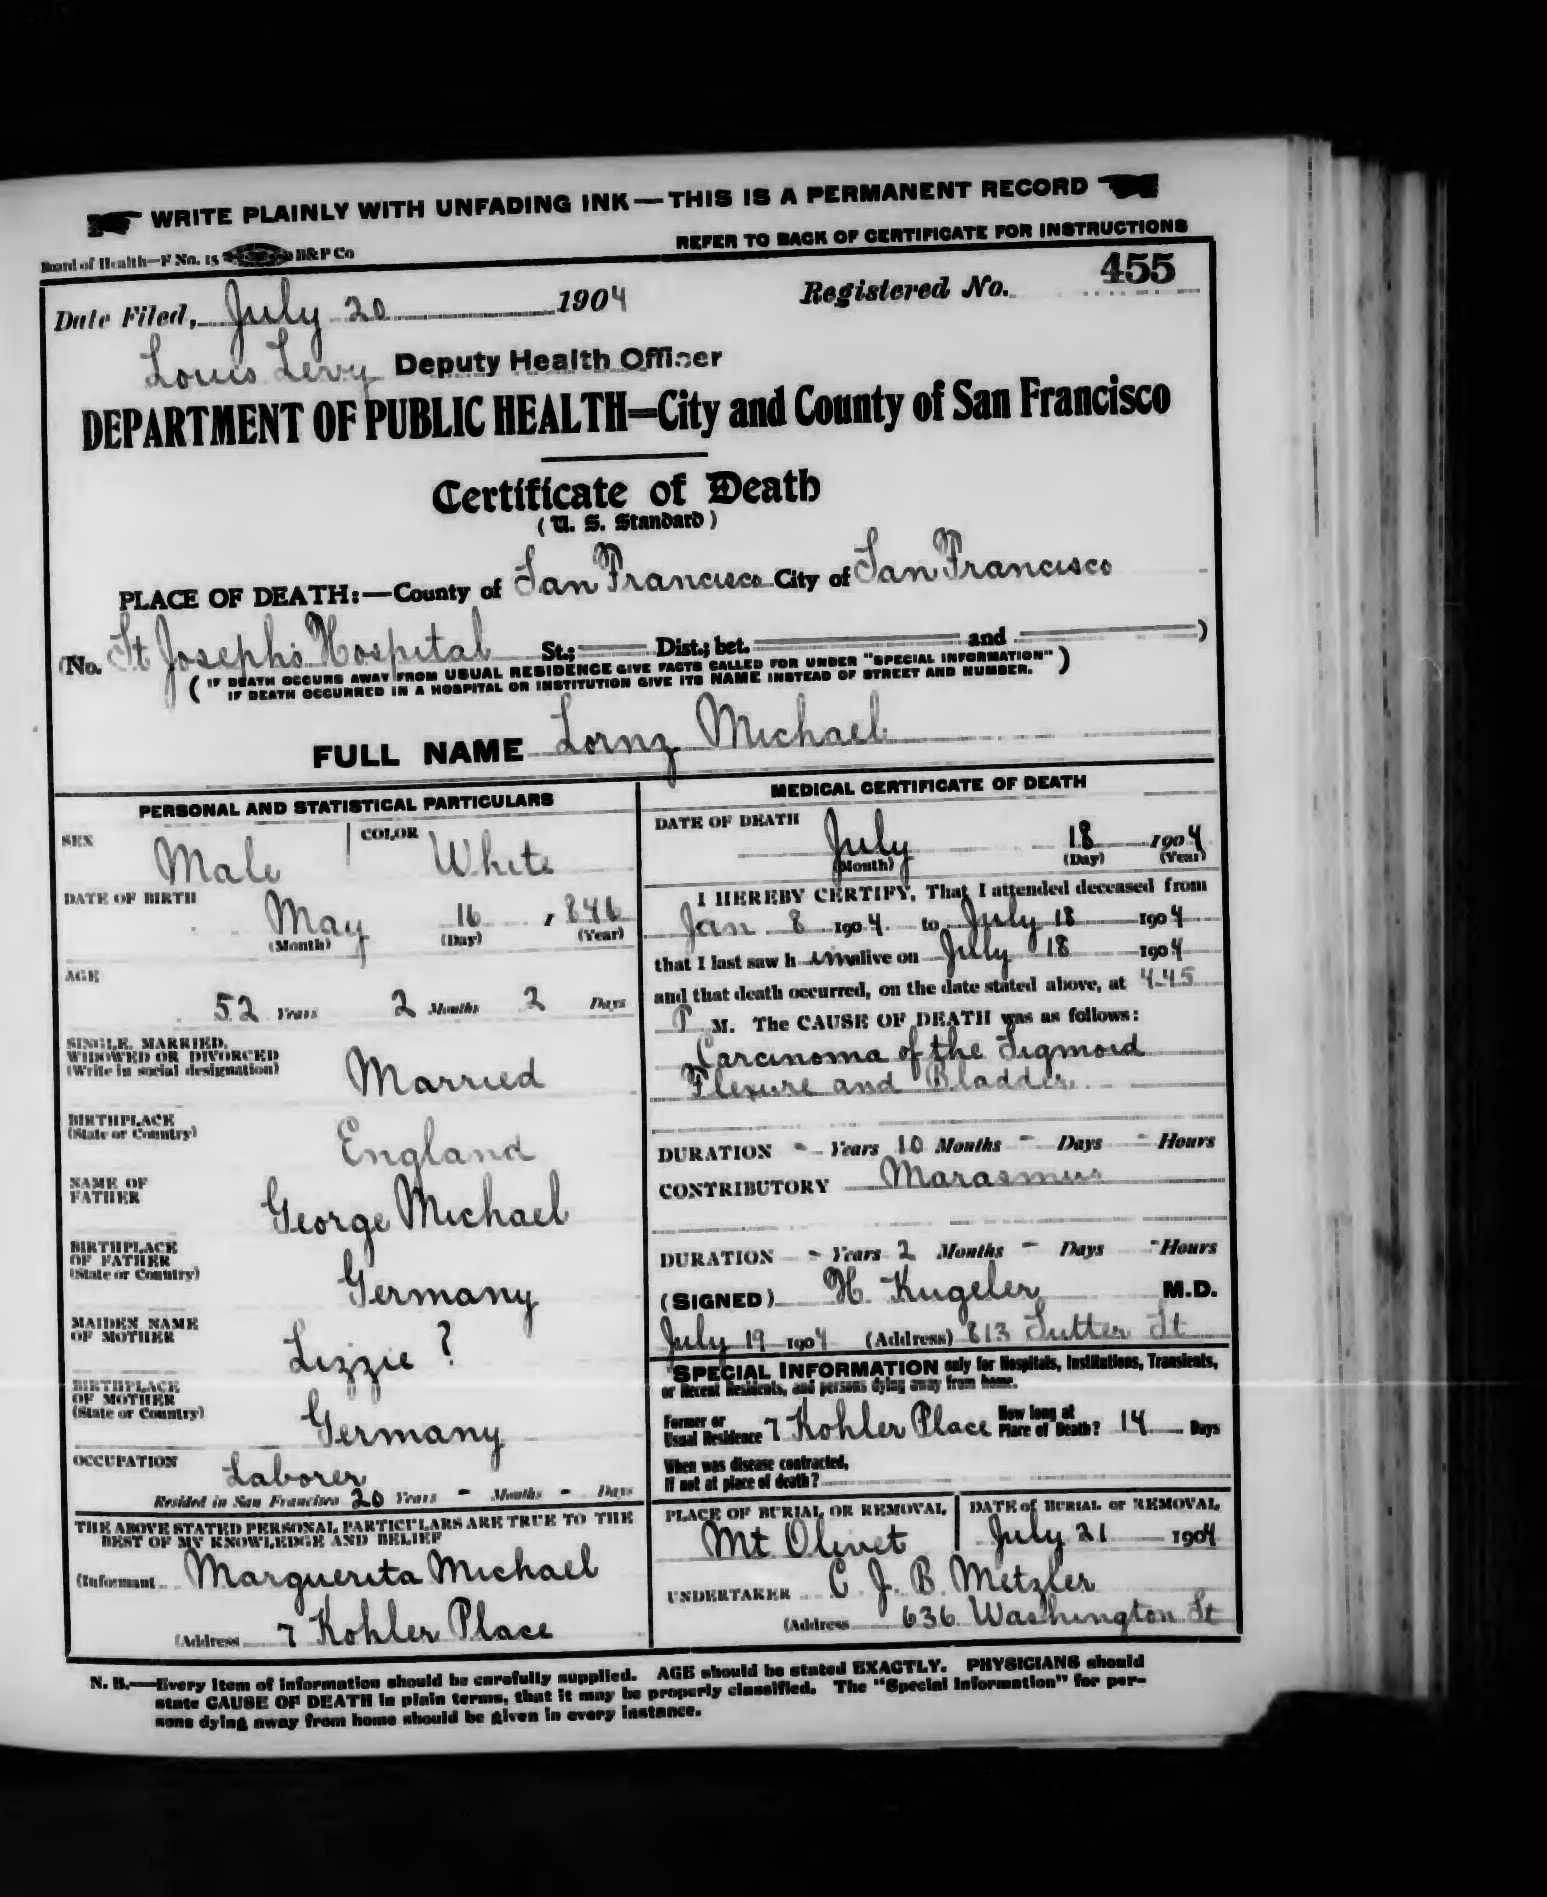 WRITE PLAINLY WITH UNFADING INK—THIS IS A PERMANENT RECORD
Board of Health—F No. 15 B&P Co REFER TO BACK OF CERTIFICATE FOR INSTRUCTIONS
Date Filed, July 20 1904 Registered No. 455
Louis Levy Deputy Health Officer
DEPARTMENT OF PUBLIC HEALTH=City and County of San Francisco
Certificate of Death
(U. S. Standard)
PLACE OF DEATH:—County of San Francisco City of San Francisco
(No. St Joseph's Hospital St.; Dist.; bet. and )
( IF DEATH OCCURS AWAY FROM USUAL RESIDENCE GIVE FACTS CALLED FOR UNDER "SPECIAL INFORMATION" )
IF DEATH OCCURRED IN A HOSPITAL OR INSTITUTION GIVE ITS NAME INSTEAD OF STREET AND NUMBER.
FULL NAME Lornz Michael
PERSONAL AND STATISTICAL PARTICULARS
SEX Male COLOR White
DATE OF BIRTH
May 16 , 846
(Month) (Day) (Year)
AGE
52 Years 2 Months 2 Days
SINGLE, MARRIED,
WIDOWED OR DIVORCED
(Write in social designation) Married
BIRTHPLACE
(State or Country) England
NAME OF
FATHER George Michael
BIRTHPLACE
OF FATHER
(State or Country) Germany
MAIDEN NAME
OF MOTHER Lizzie ?
BIRTHPLACE
OF MOTHER
(State or Country) Germany
OCCUPATION Laborer
Resided in San Francisco 20 Years - Months - Days
THE ABOVE STATED PERSONAL PARTICULARS ARE TRUE TO THE
BEST OF MY KNOWLEDGE AND BELIEF
(Informant Marguerita Michael
(Address 7 Kohler Place
MEDICAL CERTIFICATE OF DEATH
DATE OF DEATH
July 18 1904
(Month) (Day) (Year)
I HEREBY CERTIFY, That I attended deceased from
Jan 8 1904 to July 18 1904
that I last saw h im alive on July 18 1904
and that death occurred, on the date stated above, at 4-45
P M. The CAUSE OF DEATH was as follows:
Carcinoma of the Sigmoid
Flexure and Bladder
DURATION - Years 10 Months - Days - Hours
CONTRIBUTORY Marasmus
DURATION - Years 2 Months - Days - Hours
(SIGNED) H. Kugeler M.D.
July 19 1904 (Address) 813 Sutter St
SPECIAL INFORMATION only for Hospitals, Institutions, Transients,
or Recent Residents, and persons dying away from home.
Former or
Usual Residence 7 Kohler Place How long at
Place of Death? 14 Days
When was disease contracted,
If not at place of death?
PLACE OF BURIAL OR REMOVAL DATE of BURIAL or REMOVAL
Mt Olivet July 21 1904
UNDERTAKER C J. B. Metzler
(Address 636 Washington St
N. B.—Every item of information should be carefully supplied. AGE should be stated EXACTLY. PHYSICIANS should
state CAUSE OF DEATH in plain terms, that it may be properly classified. The "Special Information" for per-
sons dying away from home should be given in every instance.